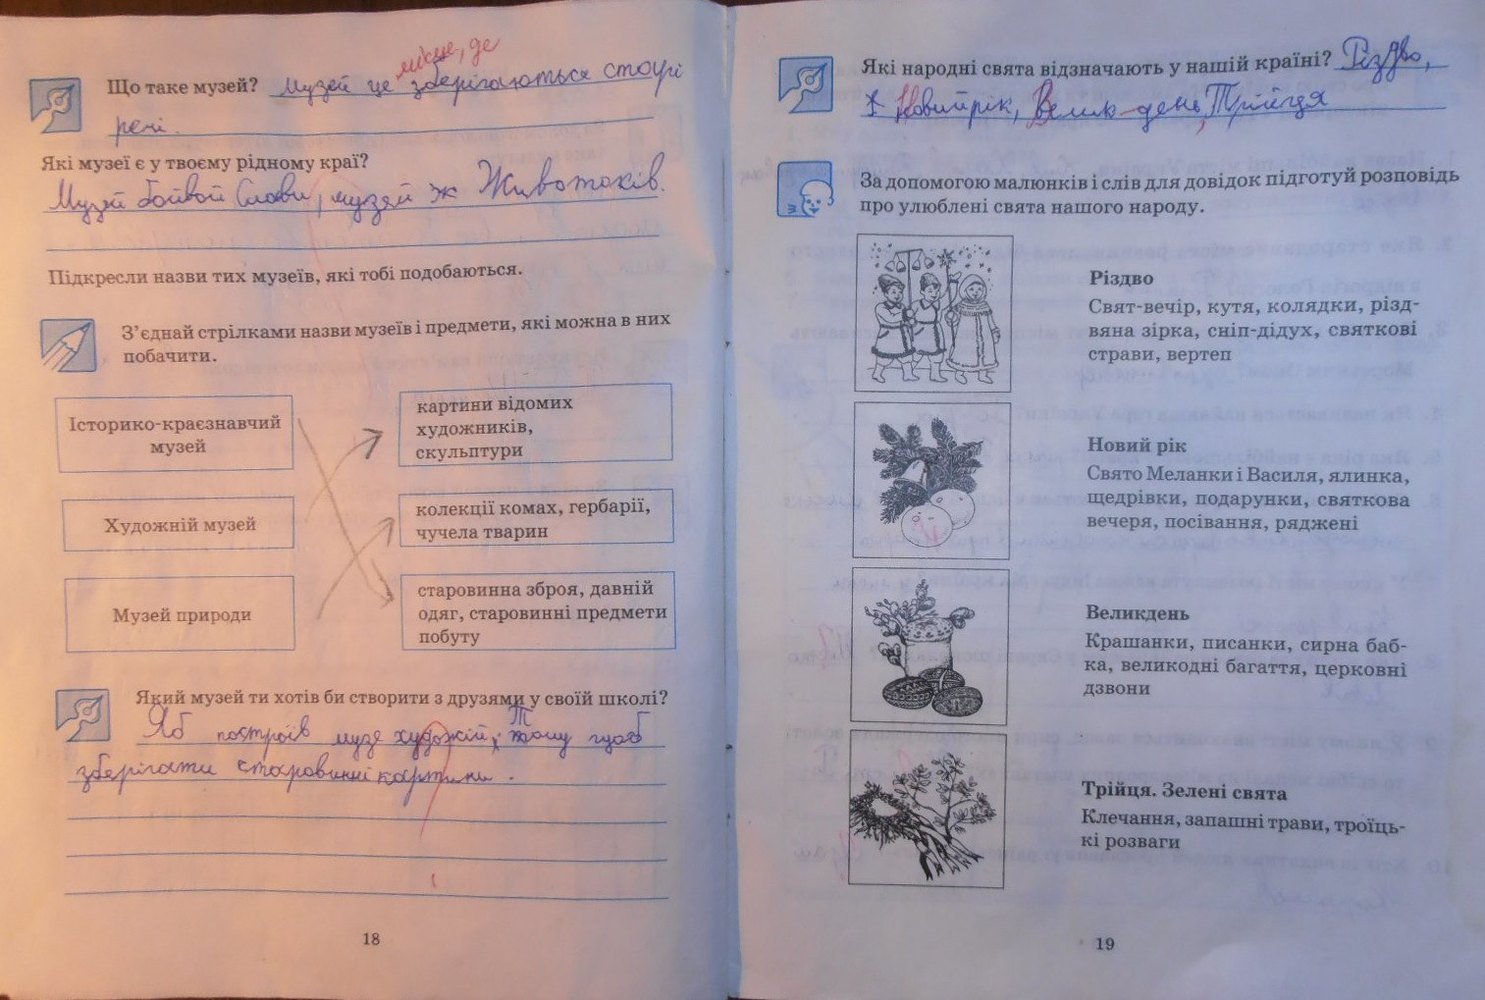 місце, де
Що таке музей? Музей це зберігаються старі
речі.
Які музеї є у твоєму рідному краї?
Музей боївой Слави, музей Животоків.
Підкресли назви тих музеїв, які тобі подобаються.
З’єднай стрілками назви музеїв і предмети, які можна в них
побачити.
Історико-краєзнавчий
музей
картини відомих
художників,
скульптури
Художній музей
колекції комах, гербарії,
чучела тварин
Музей природи
старовинна зброя, давній
одяг, старовинні предмети
побуту
Який музей ти хотів би створити з друзями у своїй школі?
Яб построїв музе художій, Тому щоб
зберігати старовинні картини.
18
Які народні свята відзначають у нашій країні? Різдво,
Новийрік, Велик-день, Трійця
За допомогою малюнків і слів для довідок підготуй розповідь
про улюблені свята нашого народу.
Різдво
Свят-вечір, кутя, колядки, різд-
вяна зірка, сніп-дідух, святкові
страви, вертеп
Новий рік
Свято Меланки і Василя, ялинка,
щедрівки, подарунки, святкова
вечеря, посівання, ряджені
Великдень
Крашанки, писанки, сирна баб-
ка, великодні багаття, церковні
дзвони
Трійця. Зелені свята
Клечання, запашні трави, троїць-
кі розваги
19